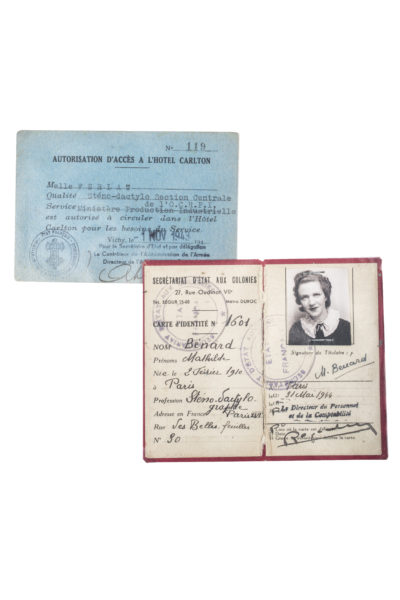 Nº 119
AUTORISATION D'ACCÈS A L'HOTEL CARLTON
Melle VERLAU
Qualité Sténo-dactylo Section Centrale
de l'O.C.R.P.I
Service Ministère Production Industrielle
est autorisé à circuler dans l'Hôtel
Carlton pour les besoins du Service
Vichy, 1 NOV 1943 194
Pour le Secrétaire d'Etat et par délégation
Le Contrôleur de l'Administration de l'Armée
Directeur de
SECRÉTARIAT D'ÉTAT AUX COLONIES
27, Rue Oudinot VIIe
Tél. SÉGUR Métro DUROC
CARTE D'IDENTITÉ Nº 1601
NOM Benard
Prénoms Mathilde
Née le 2 Février 1910
à Paris
Profession Sténo-Dactylo
graphe
Adresse en France Paris
Rue Les Belles feuilles
Nº 90
Signature du Titulaire :
M. Benard
Paris
31 Mai 1944
Le Directeur du Personnel
et de la Comptabilité